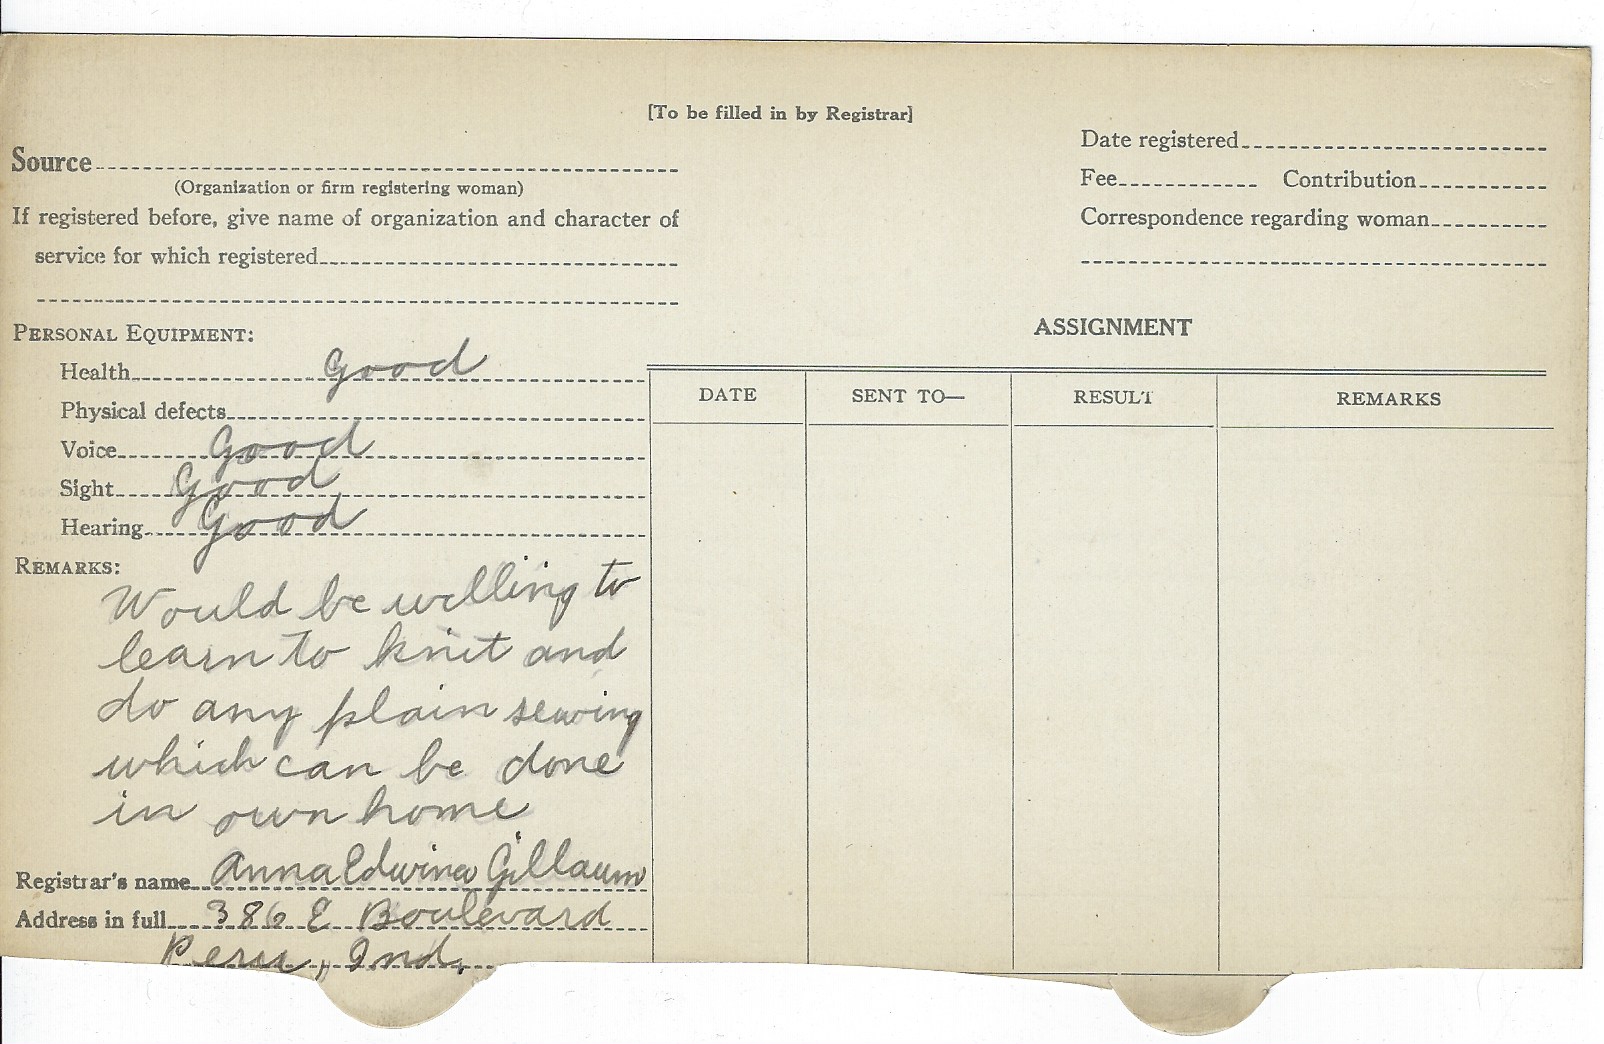 [To be filled in by Registrar]
Source
(Organization or firm registering woman)
If registered before, give name of organization and character of
service for which registered
Date registered
Fee Contribution
Correspondence regarding woman
PERSONAL EQUIPMENT:
Health Good
Physical defects
Voice Good
Sight Good
Hearing Good
REMARKS:
Would be willing to
learn to knit and
do any plain sewing
which can be done
in own home
Registrar's name Anna Edwina Gillaum
Address in full 386 E Boulevard
Peru, Ind.
ASSIGNMENT
DATE SENT TO— RESULT REMARKS